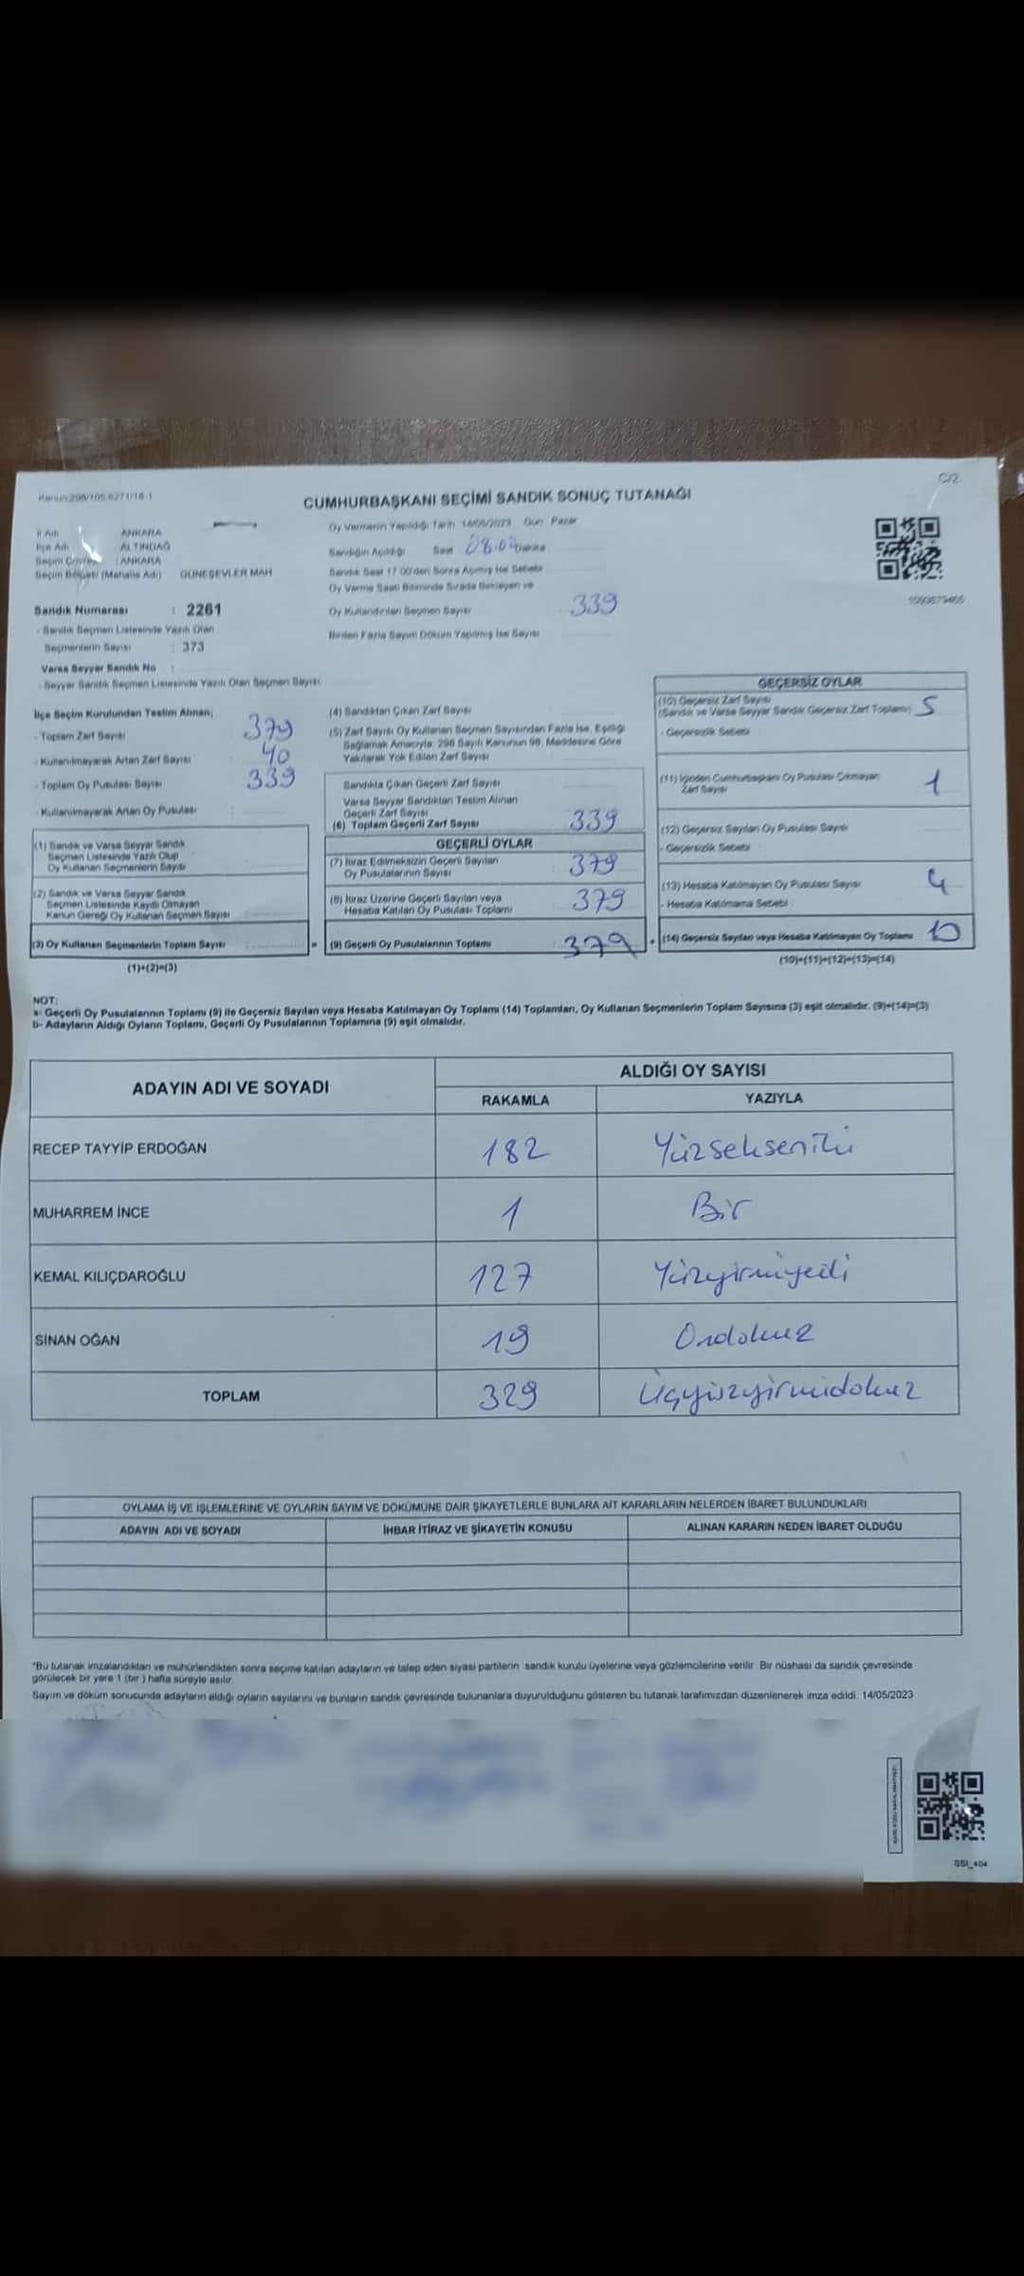 Kanun:298/105,6271/18-1
C/2
CUMHURBAŞKANI SEÇİMİ SANDIK SONUÇ TUTANAĞI
İl Adı : ANKARA
İlçe Adı : ALTINDAĞ
Seçim Çevresi : ANKARA
Seçim Bölgesi (Mahalle Adı) GÜNEŞEVLER MAH
Sandık Numarası : 2261
- Sandık Seçmen Listesinde Yazılı Olan
Seçmenlerin Sayısı : 373
Varsa Seyyar Sandık No :
- Seyyar Sandık Seçmen Listesinde Yazılı Olan Seçmen Sayısı
Oy Vermenin Yapıldığı Tarih 14/05/2023 Gün Pazar
Sandığın Açıldığı Saat 08:00 Dakika
Sandık Saat 17.00'den Sonra Açılmış İse Sebebi
Oy Verme Saati Bitiminde Sırada Bekleyen ve
Oy Kullandırılan Seçmen Sayısı 339
Birden Fazla Sayım Döküm Yapılmış İse Sayısı
İlçe Seçim Kurulundan Teslim Alınan;
- Toplam Zarf Sayısı 379
- Kullanılmayarak Artan Zarf Sayısı 40
- Toplam Oy Pusulası Sayısı 339
- Kullanılmayarak Artan Oy Pusulası
(1) Sandık ve Varsa Seyyar Sandık
Seçmen Listesinde Yazılı Olup
Oy Kullanan Seçmenlerin Sayısı
(2) Sandık ve Varsa Seyyar Sandık
Seçmen Listesinde Kaydı Olmayan
Kanun Gereği Oy Kullanan Seçmen Sayısı
(3) Oy Kullanan Seçmenlerin Toplam Sayısı =
(1)+(2)=(3)
(4) Sandıktan Çıkan Zarf Sayısı
(5) Zarf Sayısı Oy Kullanan Seçmen Sayısından Fazla İse, Eşitliği
Sağlamak Amacıyla; 298 Sayılı Kanunun 98. Maddesine Göre
Yakılarak Yok Edilen Zarf Sayısı
Sandıkta Çıkan Geçerli Zarf Sayısı
Varsa Seyyar Sandıktan Teslim Alınan
Geçerli Zarf Sayısı
(6) Toplam Geçerli Zarf Sayısı 339
GEÇERLİ OYLAR
(7) İtiraz Edilmeksizin Geçerli Sayılan
Oy Pusulalarının Sayısı 379
(8) İtiraz Üzerine Geçerli Sayılan veya
Hesaba Katılan Oy Pusulası Toplamı 379
(9) Geçerli Oy Pusulalarının Toplamı 379 +
GEÇERSİZ OYLAR
(10) Geçersiz Zarf Sayısı
(Sandık ve Varsa Seyyar Sandık Geçersiz Zarf Toplamı) 5
- Geçersizlik Sebebi
(11) İçinden Cumhurbaşkanı Oy Pusulası Çıkmayan
Zarf Sayısı 1
(12) Geçersiz Sayılan Oy Pusulası Sayısı
- Geçersizlik Sebebi
(13) Hesaba Katılmayan Oy Pusulası Sayısı 4
- Hesaba Katılmama Sebebi
(14) Geçersiz Sayılan veya Hesaba Katılmayan Oy Toplamı 10
(10)+(11)+(12)+(13)=(14)
NOT:
a- Geçerli Oy Pusulalarının Toplamı (9) ile Geçersiz Sayılan veya Hesaba Katılmayan Oy Toplamı (14) Toplamları, Oy Kullanan Seçmenlerin Toplam Sayısına (3) eşit olmalıdır. (9)+(14)=(3)
b- Adayların Aldığı Oyların Toplamı, Geçerli Oy Pusulalarının Toplamına (9) eşit olmalıdır.
ADAYIN ADI VE SOYADI ALDIĞI OY SAYISI
RAKAMLA YAZIYLA
RECEP TAYYİP ERDOĞAN 182 Yüzsekseniki
MUHARREM İNCE 1 Bir
KEMAL KILIÇDAROĞLU 127 Yüzyirmiyedi
SİNAN OĞAN 19 Ondokuz
TOPLAM 329 Üçyüzyirmidokuz
OYLAMA İŞ VE İŞLEMLERİNE VE OYLARIN SAYIM VE DÖKÜMÜNE DAİR ŞİKAYETLERLE BUNLARA AİT KARARLARIN NELERDEN İBARET BULUNDUKLARI
ADAYIN ADI VE SOYADI İHBAR İTİRAZ VE ŞİKAYETİN KONUSU ALINAN KARARIN NEDEN İBARET OLDUĞU
"Bu tutanak imzalandıktan ve mühürlendikten sonra seçime katılan adayların ve talep eden siyasi partilerin sandık kurulu üyelerine veya gözlemcilerine verilir. Bir nüshası da sandık çevresinde
görülecek bir yere 1 (bir ) hafta süreyle asılır.
Sayım ve döküm sonucunda adayların aldığı oyların sayılarını ve bunların sandık çevresinde bulunanlara duyurulduğunu gösteren bu tutanak tarafımızdan düzenlenerek imza edildi. 14/05/2023
SSI_404